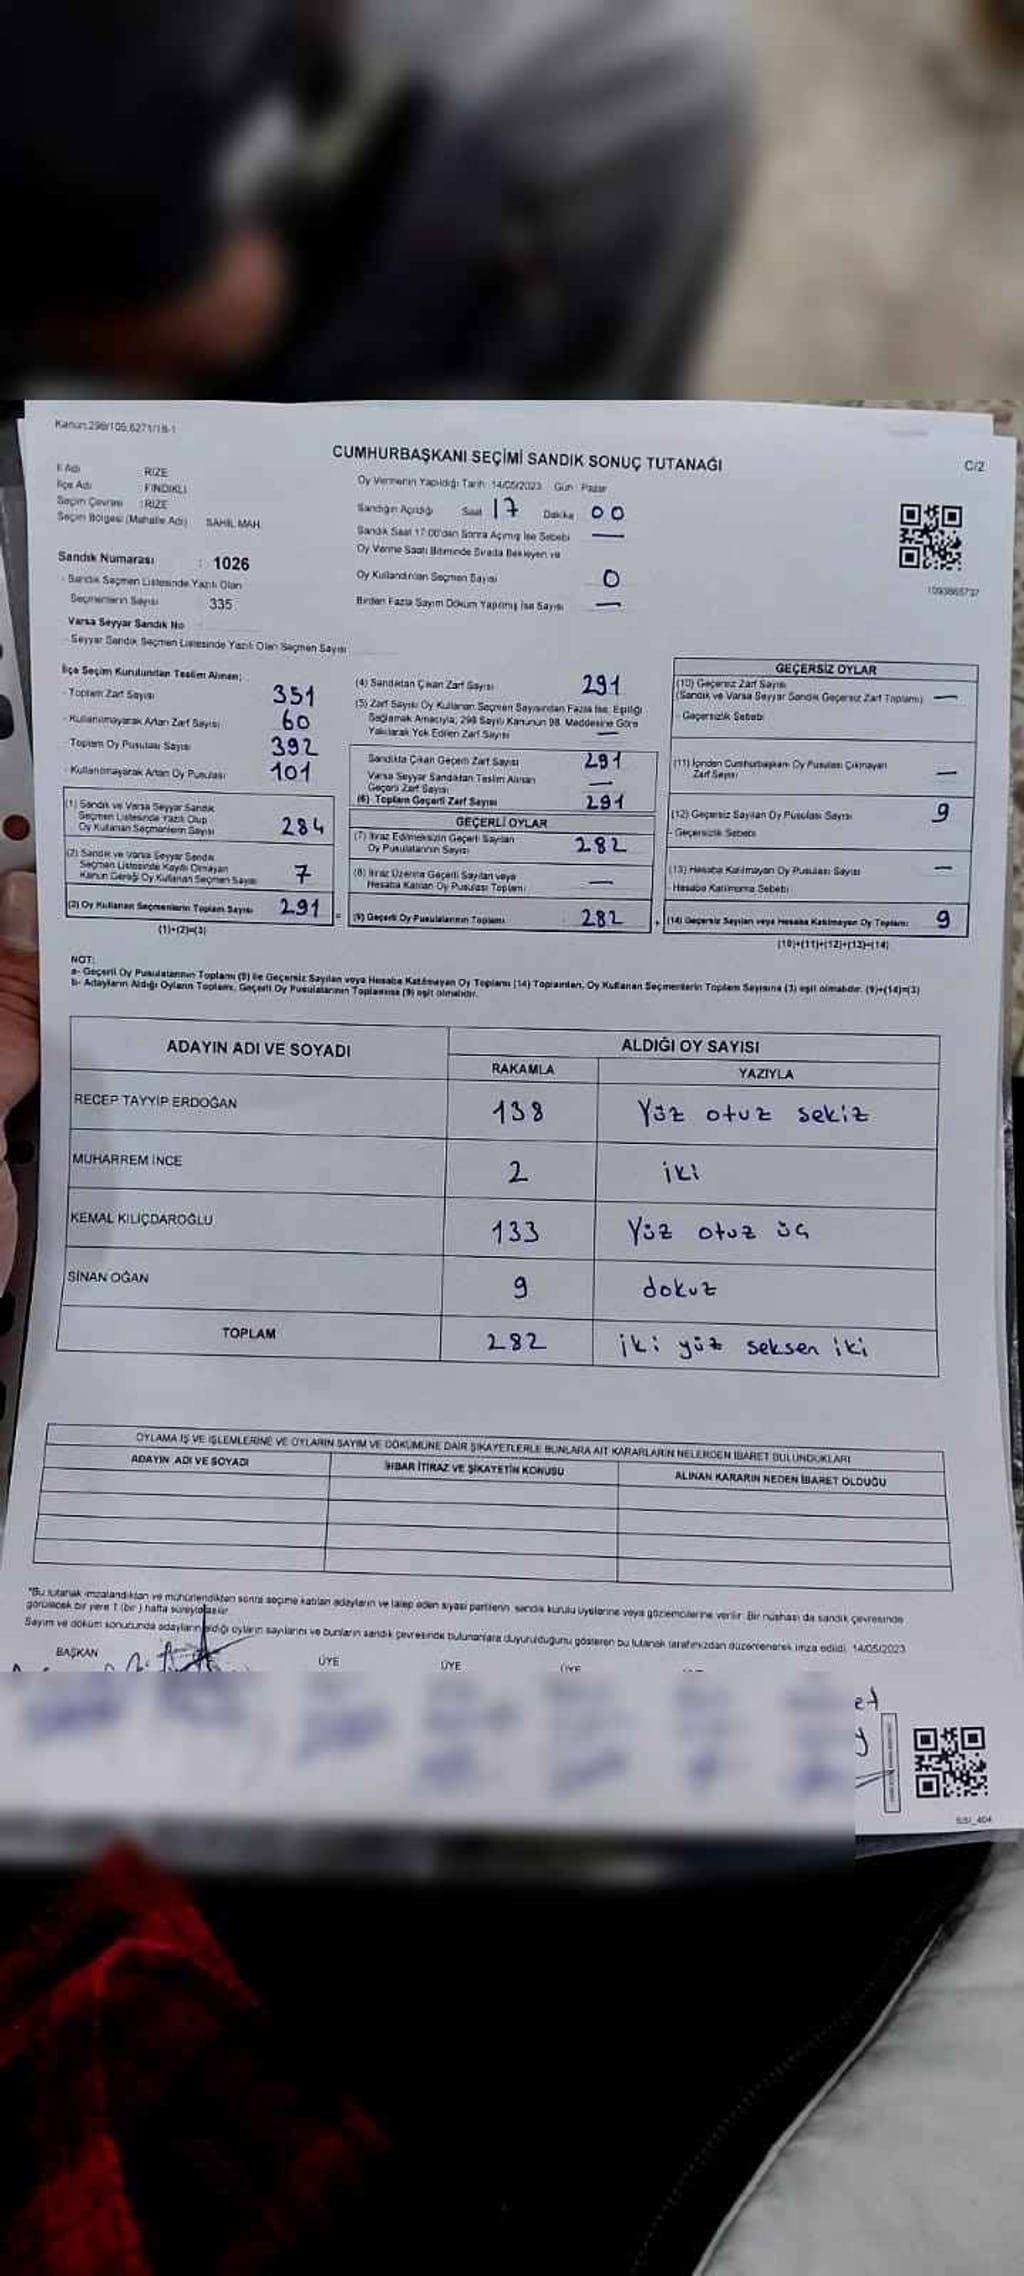 Kanun:298/105,6271/18-1
CUMHURBAŞKANI SEÇİMİ SANDIK SONUÇ TUTANAĞI
C/2
İl Adı RİZE
İlçe Adı FINDIKLI
Seçim Çevresi :RİZE
Seçim Bölgesi (Mahalle Adı) SAHİL MAH.
Sandık Numarası : 1026
- Sandık Seçmen Listesinde Yazılı Olan
Seçmenlerin Sayısı 335
Varsa Seyyar Sandık No
- Seyyar Sandık Seçmen Listesinde Yazılı Olan Seçmen Sayısı
Oy Vermenin Yapıldığı Tarih: 14/05/2023 Gün : Pazar
Sandığın Açıldığı Saat 17 Dakika 00
Sandık Saat 17:00'den Sonra Açılmış İse Sebebi —
Oy Verme Saati Bitiminde Sırada Bekleyen ve
Oy Kullandırılan Seçmen Sayısı 0
Birden Fazla Sayım Döküm Yapılmış İse Sayısı —
1093865737
İlçe Seçim Kurulundan Teslim Alınan;
- Toplam Zarf Sayısı 351
- Kullanılmayarak Artan Zarf Sayısı 60
- Toplam Oy Pusulası Sayısı 392
- Kullanılmayarak Artan Oy Pusulası 101
(1) Sandık ve Varsa Seyyar Sandık
Seçmen Listesinde Yazılı Olup
Oy Kullanan Seçmenlerin Sayısı 284
(2) Sandık ve Varsa Seyyar Sandık
Seçmen Listesinde Kayıtlı Olmayan
Kanun Gereği Oy Kullanan Seçmen Sayısı 7
(3) Oy Kullanan Seçmenlerin Toplam Sayısı 291 =
(1)+(2)=(3)
(4) Sandıktan Çıkan Zarf Sayısı 291
(5) Zarf Sayısı Oy Kullanan Seçmen Sayısından Fazla İse, Eşitliği
Sağlamak Amacıyla, 298 Sayılı Kanunun 98. Maddesine Göre
Yakılarak Yok Edilen Zarf Sayısı —
Sandıkta Çıkan Geçerli Zarf Sayısı 291
Varsa Seyyar Sandıktan Teslim Alınan
Geçerli Zarf Sayısı —
(6) Toplam Geçerli Zarf Sayısı 291
GEÇERLİ OYLAR
(7) İtiraz Edilmeksizin Geçerli Sayılan
Oy Pusulalarının Sayısı 282
(8) İtiraz Üzerine Geçerli Sayılan veya
Hesaba Katılan Oy Pusulası Toplamı —
(9) Geçerli Oy Pusulalarının Toplamı 282 +
GEÇERSİZ OYLAR
(10) Geçersiz Zarf Sayısı
(Sandık ve Varsa Seyyar Sandık Geçersiz Zarf Toplamı) —
- Geçersizlik Sebebi
(11) İçinden Cumhurbaşkanı Oy Pusulası Çıkmayan
Zarf Sayısı —
(12) Geçersiz Sayılan Oy Pusulası Sayısı 9
- Geçersizlik Sebebi
(13) Hesaba Katılmayan Oy Pusulası Sayısı —
Hesaba Katılmama Sebebi
(14) Geçersiz Sayılan veya Hesaba Katılmayan Oy Toplamı 9
(10)+(11)+(12)+(13)=(14)
NOT:
a- Geçerli Oy Pusulalarının Toplamı (9) ile Geçersiz Sayılan veya Hesaba Katılmayan Oy Toplamı (14) Toplamları, Oy Kullanan Seçmenlerin Toplam Sayısına (3) eşit olmalıdır. (9)+(14)=(3)
b- Adayların Aldığı Oyların Toplamı, Geçerli Oy Pusulalarının Toplamına (9) eşit olmalıdır.
ADAYIN ADI VE SOYADI ALDIĞI OY SAYISI
RAKAMLA YAZIYLA
RECEP TAYYİP ERDOĞAN 138 Yüz otuz sekiz
MUHARREM İNCE 2 iki
KEMAL KILIÇDAROĞLU 133 Yüz otuz üç
SİNAN OĞAN 9 dokuz
TOPLAM 282 iki yüz seksen iki
OYLAMA İŞ VE İŞLEMLERİNE VE OYLARIN SAYIM VE DÖKÜMÜNE DAİR ŞİKAYETLERLE BUNLARA AİT KARARLARIN NELERDEN İBARET BULUNDUKLARI
ADAYIN ADI VE SOYADI İHBAR İTİRAZ VE ŞİKAYETİN KONUSU ALINAN KARARIN NEDEN İBARET OLDUĞU
*Bu tutanak imzalandıktan ve mühürlendikten sonra seçime katılan adayların ve talep eden siyasi partilerin, sandık kurulu üyelerine veya gözlemcilerine verilir. Bir nüshası da sandık çevresinde
görülecek bir yere 1 (bir) hafta süreyle asılır.
Sayım ve döküm sonucunda adayların aldığı oyların sayılarını ve bunların sandık çevresinde bulunanlara duyurulduğunu gösteren bu tutanak tarafımızdan düzenlenerek imza edildi. 14/05/2023
BAŞKAN ÜYE ÜYE ÜYE
et